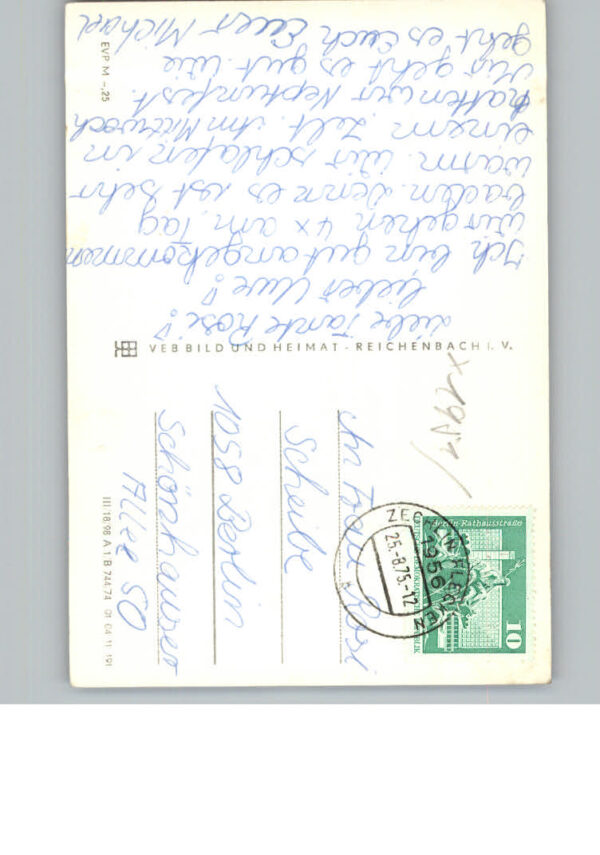 Liebe Tante Rosi!
Lieber Uwe!
Ich bin gut angekommen
wir gehen 4x am Tag
baden denn es ist sehr
warm. Wir schlafen in
einem Zelt. Am Mittwoch
hatten wir Neptunfest.
Mir geht es gut. Wie
geht es Euch Euer Michael
EVP M -,25
VEB BILD UND HEIMAT - REICHENBACH I. V.
III 18 98 A 1 B 744 74 01 04 11 191
An Frau Rosi
Scheibe
1058 Berlin
Schönhauser
Allee 50
Berlin Rathausstraße
10
1956
25.-8.75.-12